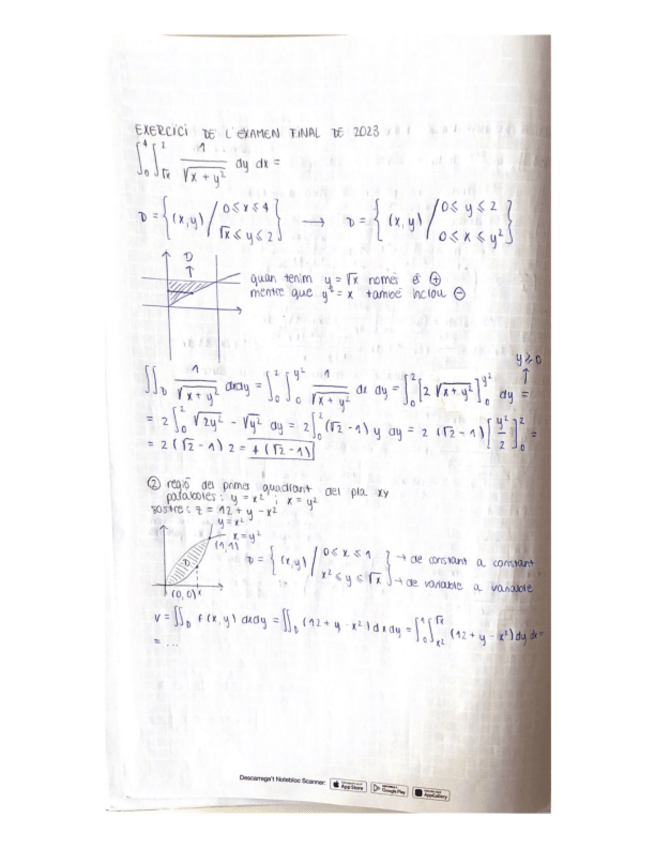 EXERCICI DE L'EXAMEN FINAL DE 2023
∫₀⁴∫_√x² 1/√(x + y²) dy dx =
D = {(x,y) / 0 ≤ x ≤ 4, √x ≤ y ≤ 2} → D = {(x,y) / 0 ≤ y ≤ 2, 0 ≤ x ≤ y²}
D
quan tenim y = √x només és ⊕
mentre que y² = x també inclou ⊖
y ≥ 0
∬_D 1/√(x + y²) dxdy = ∫₀²∫₀^y² 1/√(x + y²) dx dy = ∫₀² [2√(x + y²)]₀^y² dy =
= 2∫₀² √2y² - √y² dy = 2∫₀² (√2 - 1) y dy = 2 (√2 - 1) [y²/2]₀² =
= 2 (√2 - 1) 2 = 4 (√2 - 1)
② regió del primer quadrant del pla xy
paràboles: y = x² i x = y²
sostre: z = 12 + y - x²
y = x²
x = y²
(1,1)
D
(0,0) x
D = {(x,y) / 0 ≤ x ≤ 1 → de constant a constant
x² ≤ y ≤ √x} → de variable a variable
V = ∬_D f(x,y) dxdy = ∬_D (12 + y - x²) dx dy = ∫₀¹∫_x²^√x (12 + y - x²) dy dx =
= ...
Descarrega't Notebloc Scanner:
App Store
Google Play
AppGallery